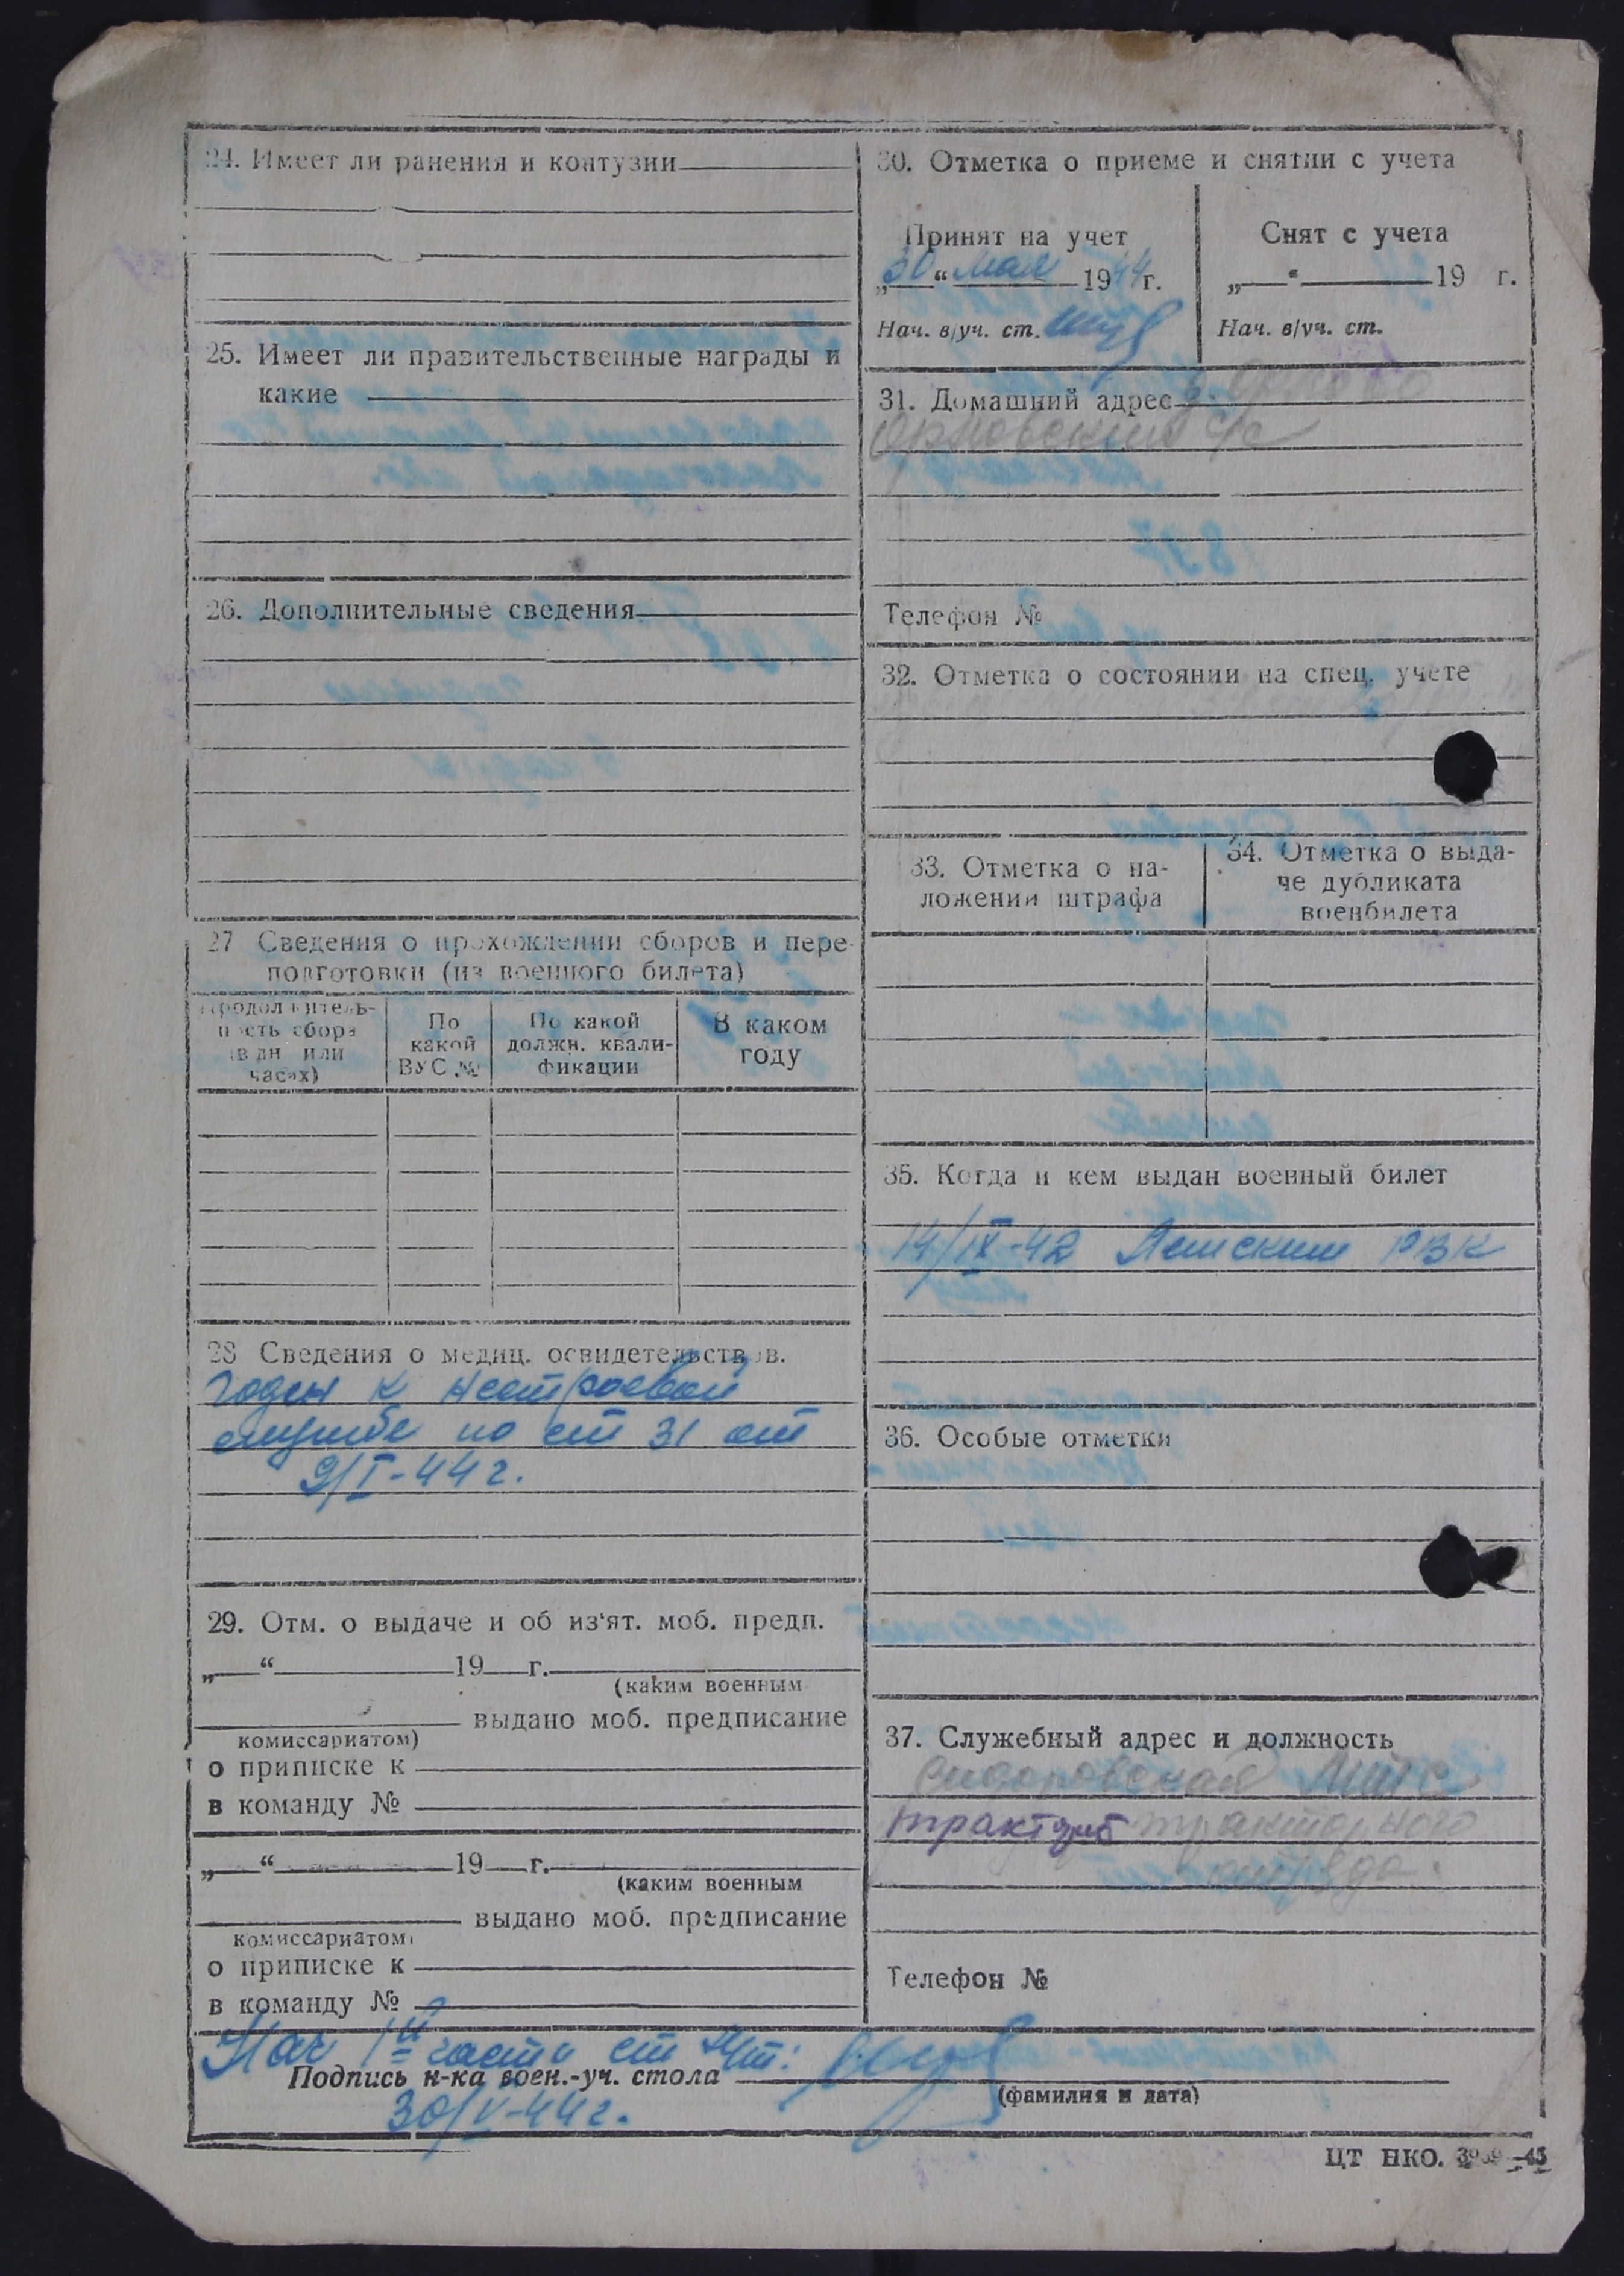 24. Имеет ли ранения и контузии
25. Имеет ли правительственные награды и
какие
26. Дополнительные сведения
27 Сведения о прохождении сборов и пере-
подготовки (из военного билета)
Продолжитель-
ность сбора
(в дн или
часах)
По
какой
ВУС №
По какой
должн. квали-
фикации
В каком
году
28 Сведения о медиц. освидетельств в.
годен к нестроевой
службе по ст 31 от
9/I-44 г.
29. Отм. о выдаче и об из'ят. моб. предп.
„ “ 19 г.
(каким военным
выдано моб. предписание
комиссариатом)
о приписке к
в команду №
„ “ 19 г.
(каким военным
выдано моб. предписание
комиссариатом)
о приписке к
в команду №
30. Отметка о приеме и снятии с учета
Принят на учет
„30“ мая 1944г.
Нач. в/уч. ст.
Снят с учета
„ “ 19 г.
Нач. в/уч. ст.
31. Домашний адрес
Телефон №
32. Отметка о состоянии на спец. учете
33. Отметка о на-
ложении штрафа
34. Отметка о выда-
че дубликата
военбилета
35. Когда и кем выдан военный билет
14/IX-42 РВК
36. Особые отметки
37. Служебный адрес и должность
тракторного
отряда.
Телефон №
Нач 1й части ст
Подпись н-ка воен.-уч. стола
(фамилия и дата)
30/V-44 г.
ЦТ НКО.